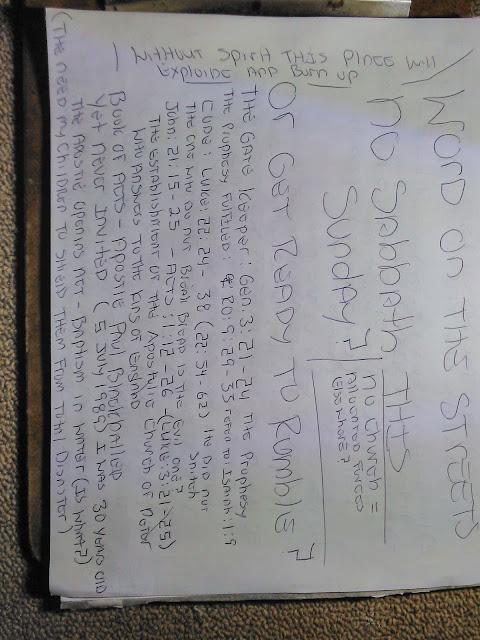 WITHOUT SPIRIT THIS PLACE WILL
Exploide AND Burn up
WORD ON THE STREETS
NO SABBATH THIS
SUNDAY ?
NO CHURCH =
Elsewhere ?
Or GET READY TO RUMBLE ?
THE GATE KEEPER : GEN: 3:21-24 THE Prophesy
THE Prophesy Fulfilled : ROM: 9:29-33 refer to: Isaiah: 1:9
CLUE : LUKE: 22:24-38 (22:54-62) He DID NOT
Snitch
THE ONE WHO DO NOT Break Bread IS THE Evil One ?
John: 21:15-25 - ACTS: 11:12-26 - (LUKE: 3:21-25)
THE Establishment of THE Apostolic Church of
WHO ANSWERS TO THE KING OF England
Book of Acts - Apostle Paul Blackballed
Yet never INVITED (5 July 1989 I was 30 years old
THE Apostle not - Baptism in water (IS what ?)
(THE NEED my children to shield Them From Total Disaster)